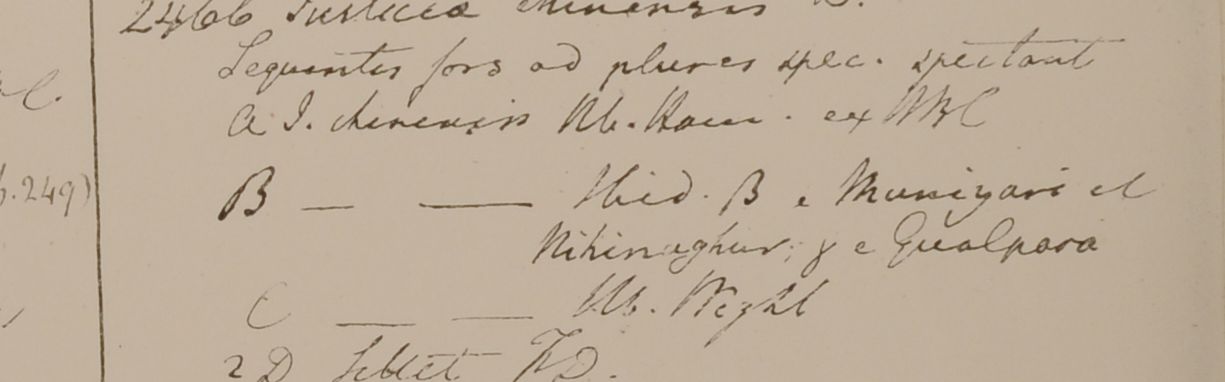 l.
2466 Justicia chinensis L.
Sequentes fors ad plures spec. spectant
A J. chinensis Hb. Ham. ex HBC
b.249)
B — — Ibid. β e Munizari et
Nihinaghur; γ e Gualpara
C — — Hb. Wight
2D Silhet FD.